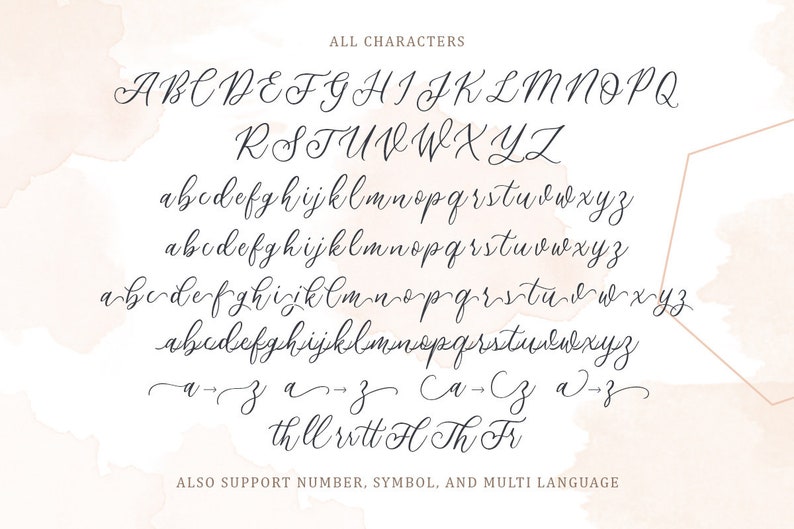 ALL CHARACTERS
A B C D E F G H I J K L M N O P Q
R S T U V W X Y Z
a b c d e f g h i j k l m n o p q r s t u v w x y z
a b c d e f g h i j k l m n o p q r s t u v w x y z
a b c d e f g h i j k l m n o p q r s t u v w x y z
a b c d e f g h i j k l m n o p q r s t u v w x y z
a→z a→z a→z a→z
th ll rr tt H Th Fr
ALSO SUPPORT NUMBER, SYMBOL, AND MULTI LANGUAGE